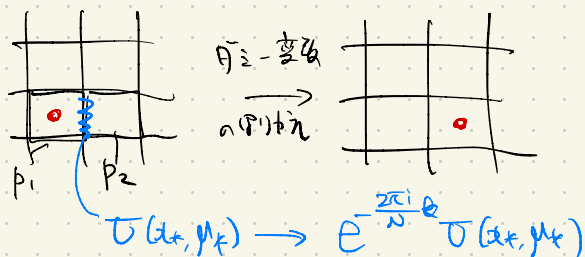 ダミー変数
のとりかえ
p₁ p₂
U(x*, μ*) → e^{-\frac{2πi}{N}k} U(x*, μ*)